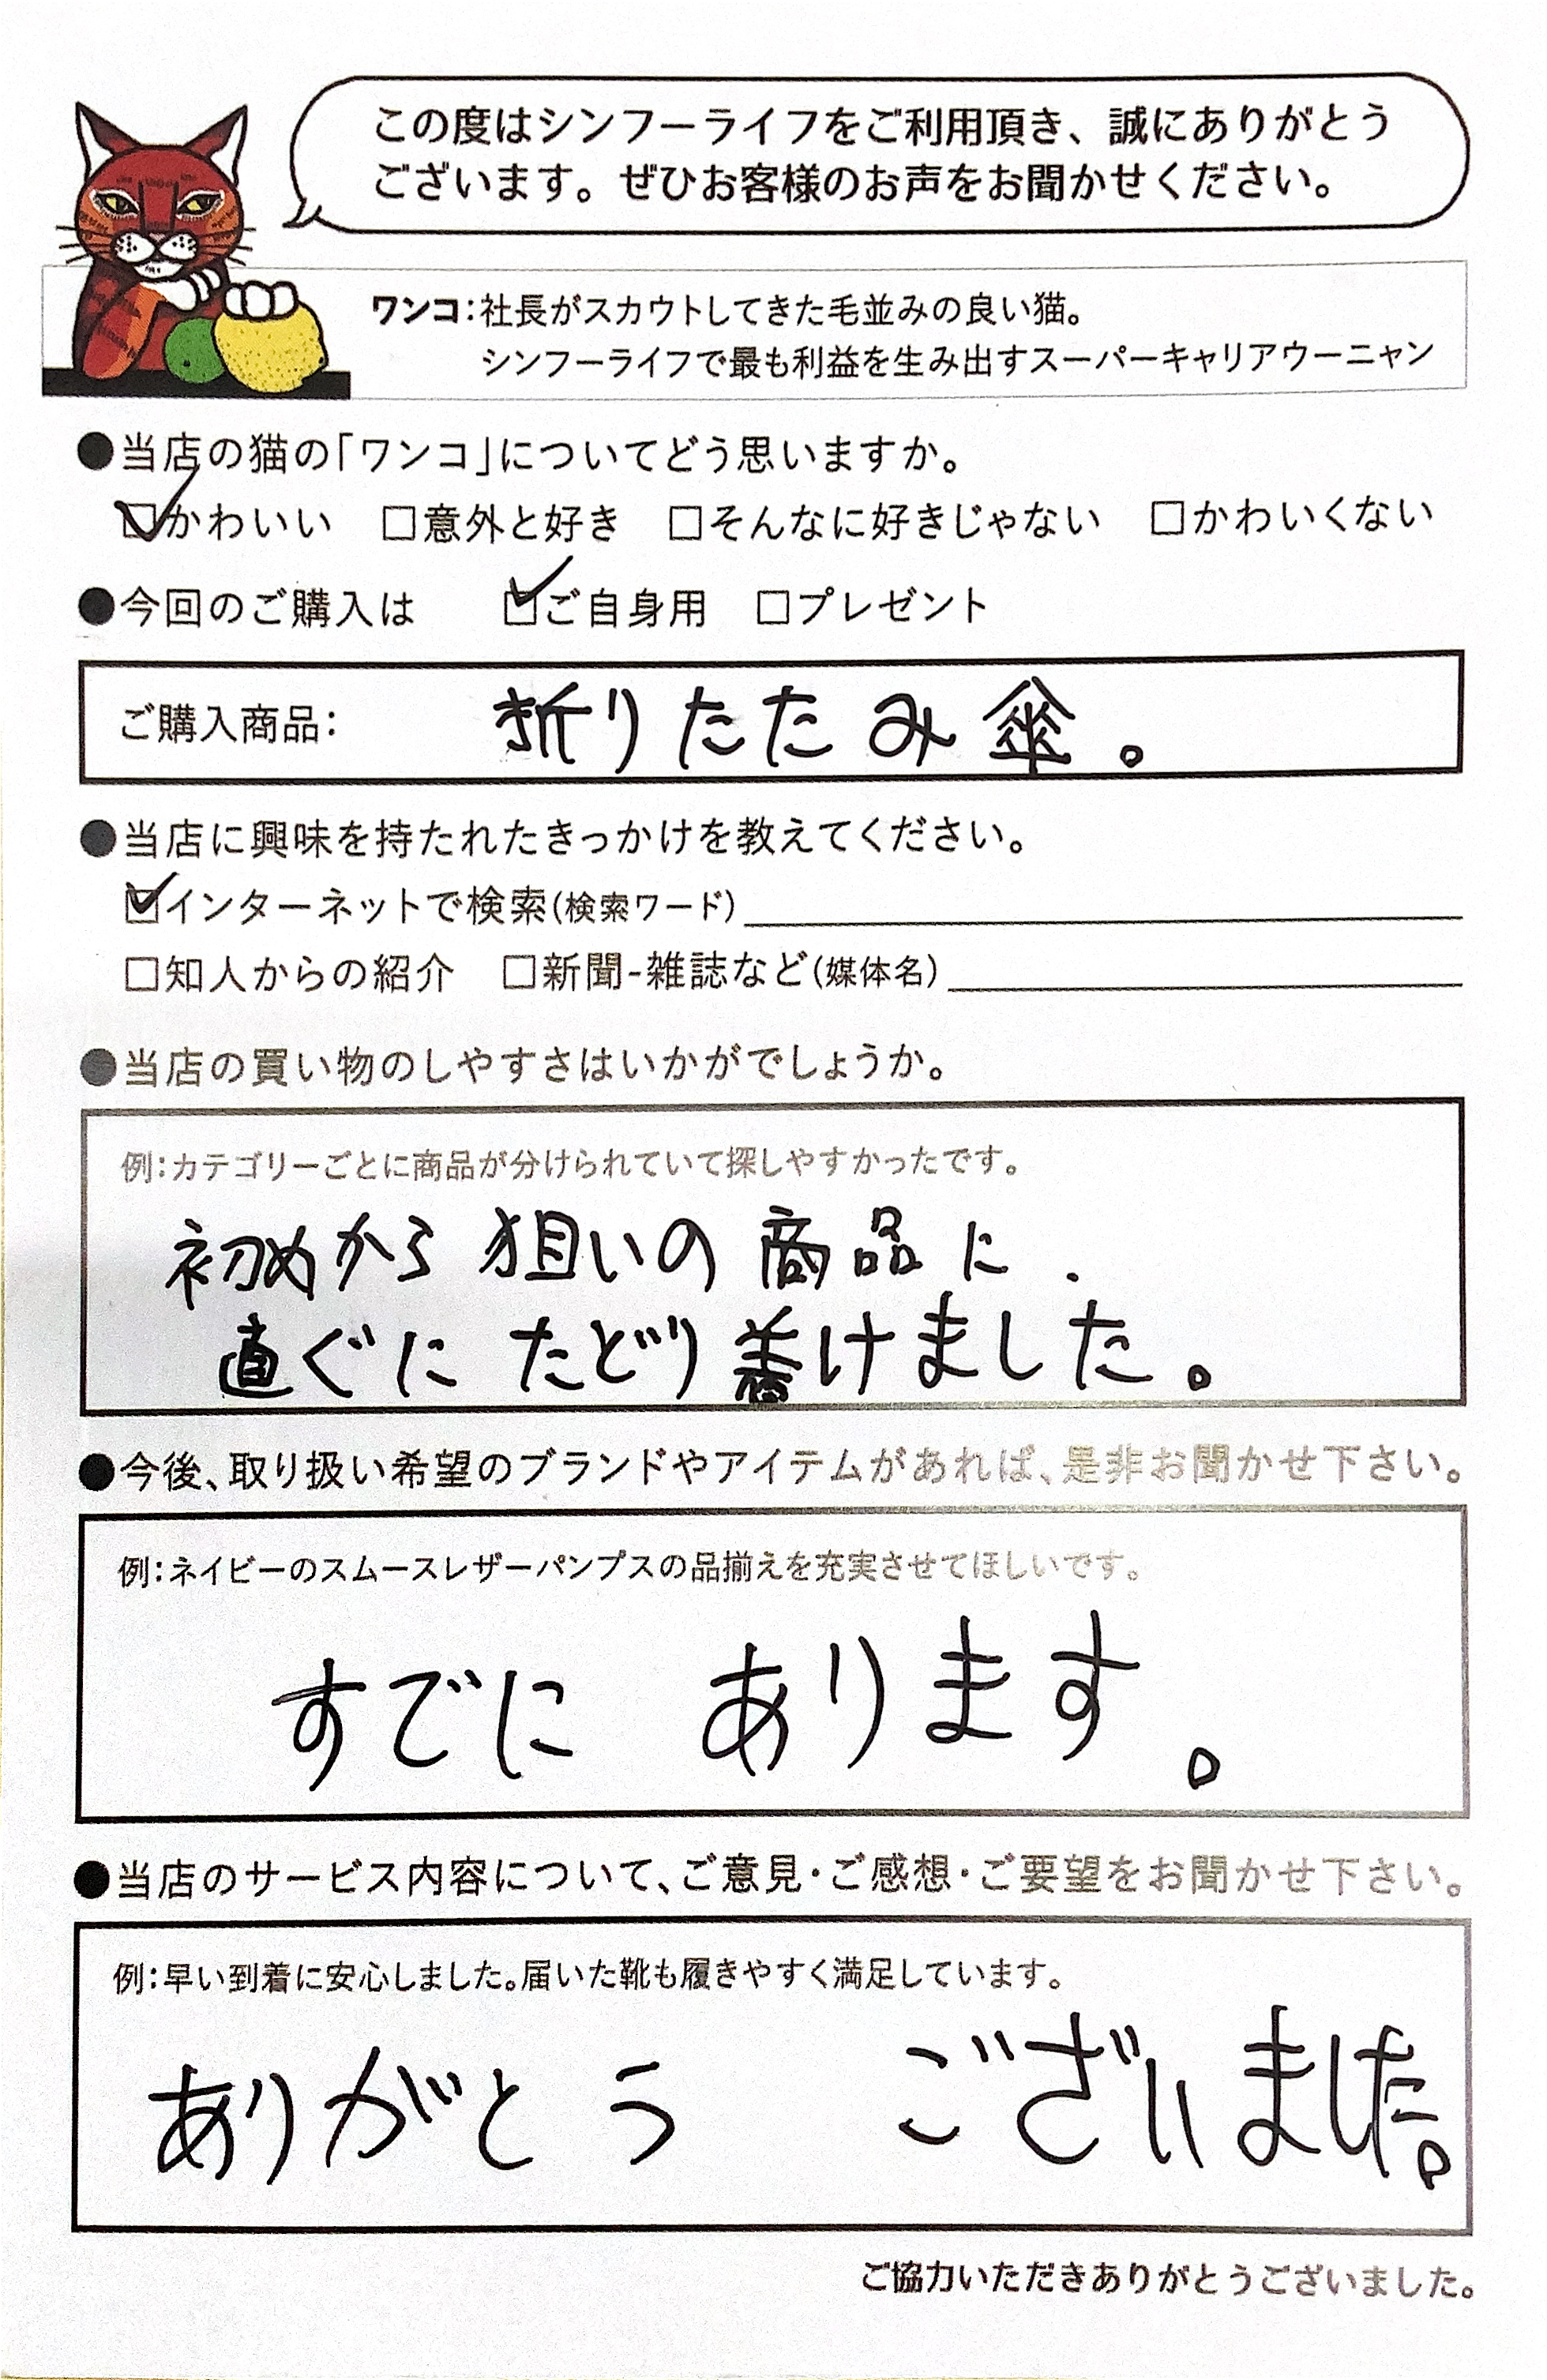 この度はシンフーライフをご利用頂き、誠にありがとう
ございます。ぜひお客様のお声をお聞かせください。
ワンコ:社長がスカウトしてきた毛並みの良い猫。
シンフーライフで最も利益を生み出すスーパーキャリアウーニャン
●当店の猫の「ワンコ」についてどう思いますか。
☑かわいい □意外と好き □そんなに好きじゃない □かわいくない
●今回のご購入は ☑ご自身用 □プレゼント
ご購入商品: 折りたたみ傘。
●当店に興味を持たれたきっかけを教えてください。
☑インターネットで検索(検索ワード)
□知人からの紹介 □新聞-雑誌など(媒体名)
●当店の買い物のしやすさはいかがでしょうか。
例:カテゴリーごとに商品が分けられていて探しやすかったです。
初めから狙いの商品に.
直ぐにたどり着けました。
●今後、取り扱い希望のブランドやアイテムがあれば、是非お聞かせ下さい。
例:ネイビーのスムースレザーパンプスの品揃えを充実させてほしいです。
すでに あります。
●当店のサービス内容について、ご意見・ご感想・ご要望をお聞かせ下さい。
例:早い到着に安心しました。届いた靴も履きやすく満足しています。
ありがとう ございました。
ご協力いただきありがとうございました。